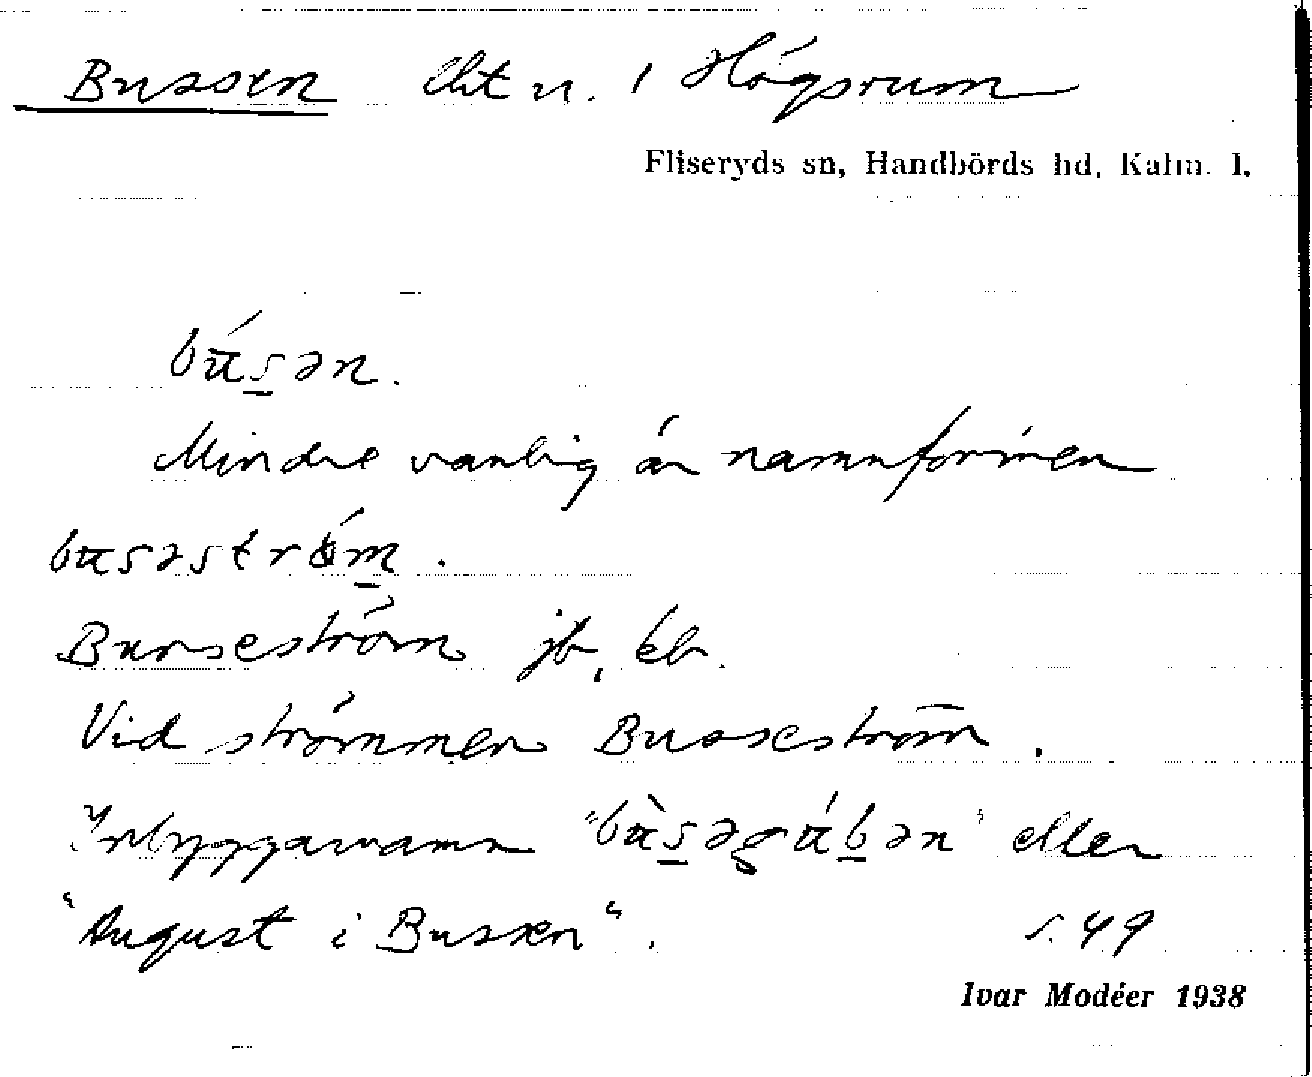 Bussen lht u. / Högsrum
Fliseryds sn, Handbörds hd, Kalm. l.
bús̲ən.
Mindre vanlig än namnformen
busəström̲.
Burseström jb, kb.
Vid strömmen Busseström.
Inbyggarnamn "bùs̲əgúb̲ən" eller
"August i Bussen". s. 49
Ivar Modéer 1938